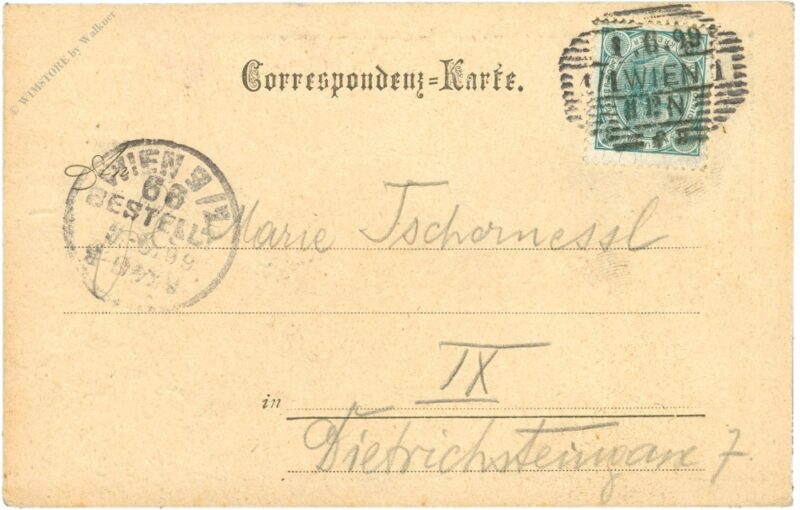 © WIMSTORE by Walkner
Correspondenz=Karte.
1 6 99
1 WIEN 1
12 N
An
WIEN 9/
66
BESTELL
99
Marie Tschornessl
IX
in
Dietrichsteingasse 7